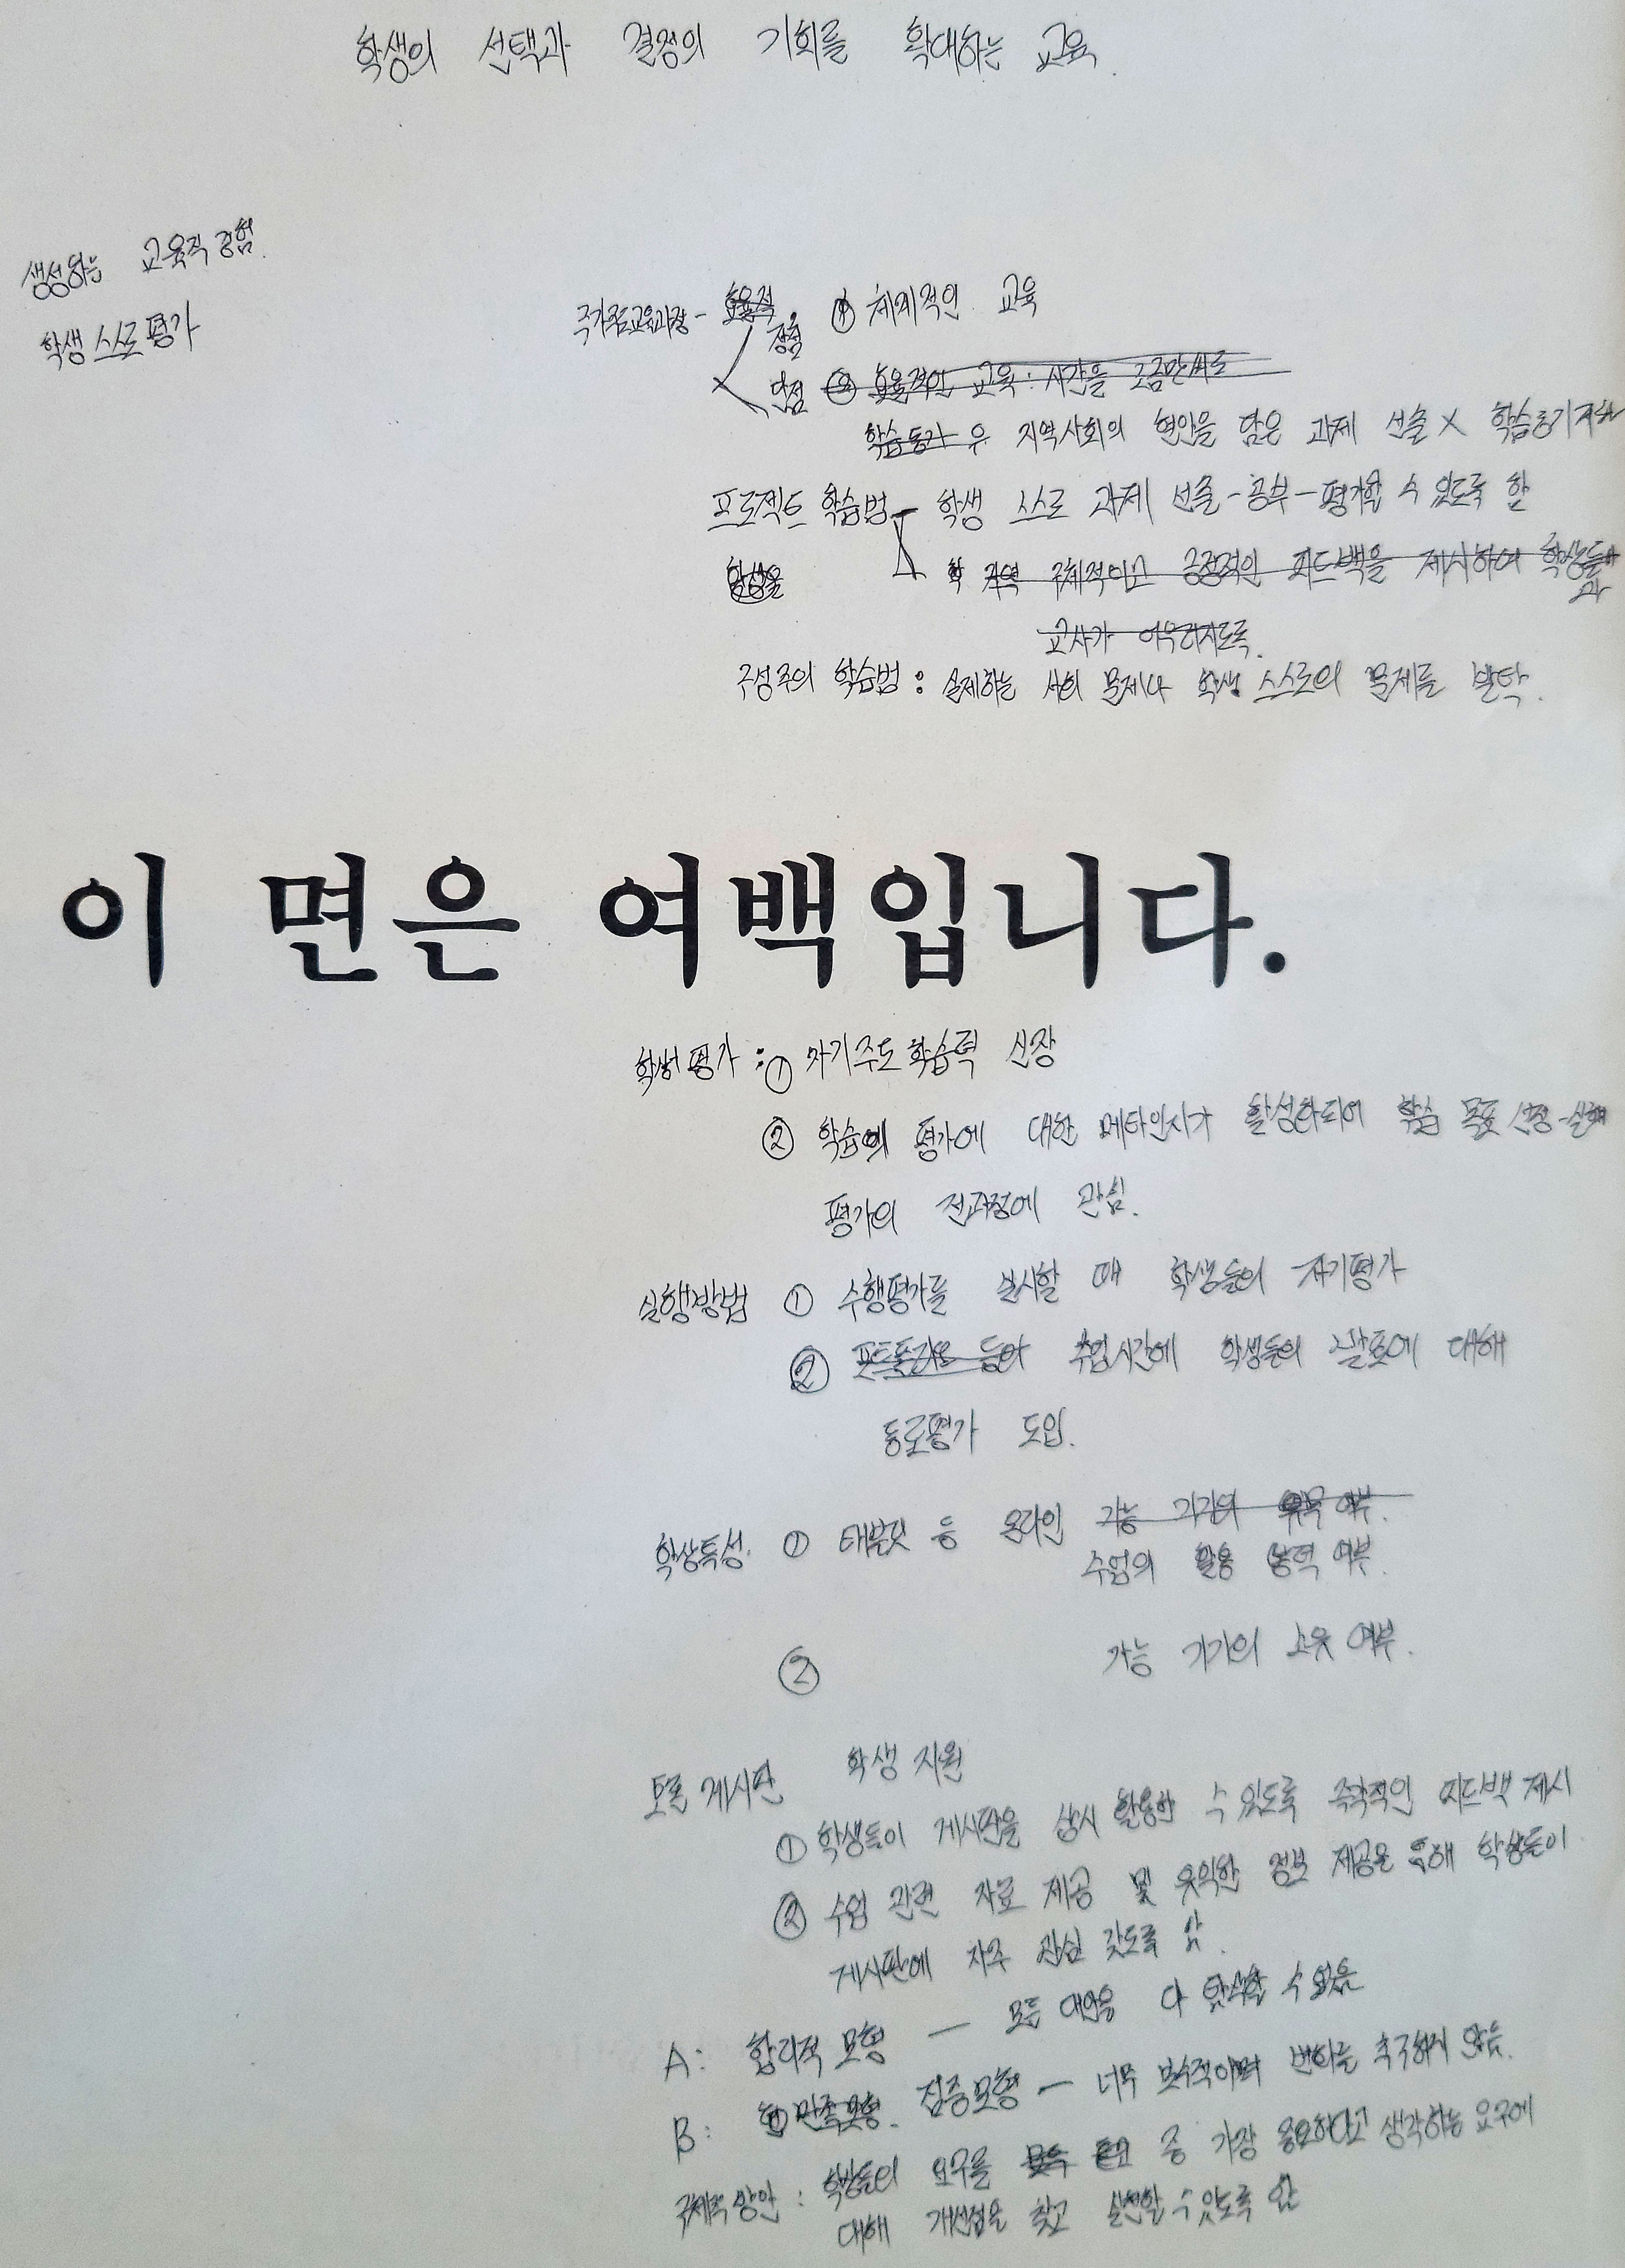 학생의 선택과 결정의 기회를 확대하는 교육.
생성하는 교육적 경험.
학생 스스로 평가
국가주도교육과정 - 효율적.
장점 ① 체계적인 교육
단점 ② 효율적인 교육 : 시간을 조금만 써도
학습동기 우 지역사회의 현안을 담은 과제 선출 X 학습동기저하
프로젝트 학습법 - 학생 스스로 과제 선출 - 공부 - 평가할 수 있도록 함
학생을 학 지역 구체적이고 긍정적인 피드백을 제시하여 학생들과
교사가 어우러지도록.
구성주의 학습법 : 실제하는 사회 문제나 학생 스스로의 문제를 발탁.
이 면은 여백입니다.
학생평가 : ① 자기주도학습력 신장
② 학습의 평가에 대한 메타인지가 활성화되어 학습 목표 선정 - 실행
평가의 전과정에 관심.
실행방법 ① 수행평가를 실시할 때 학생들의 자기평가
② 포트폴리오 등의 수업시간에 학생들의 발표에 대해
동료평가 도입.
학생특성. ① 태블릿 등 온라인 가능 기기의 여부.
수업의 활용 능력 여부.
② 가능 기기의 소유 여부.
토론 게시판 학생 지원
① 학생들이 게시판을 상시 활용할 수 있도록 즉각적인 피드백 제시
② 수업 관련 자료 제공 및 유익한 정보 제공을 통해 학생들이
게시판에 자주 관심 갖도록 함.
A : 합리적 모형 — 모든 대안을 다 탐색할 수 없음
B : 만족모형. 점증모형 — 너무 보수적이며 변화를 추구하지 않음.
구체적 방안 : 학생들의 요구를 중 가장 중요하다고 생각하는 요구에
대해 개선점을 찾고 실현할 수 있도록 함